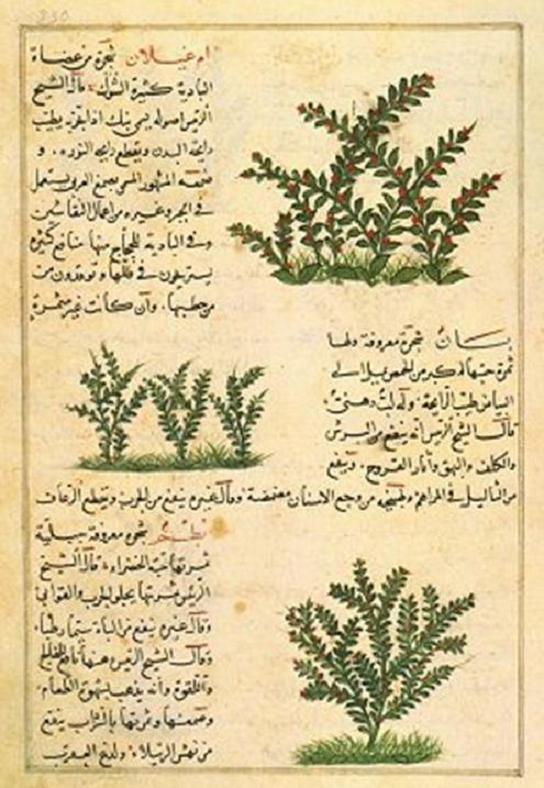 ام غيلان شجرة من عضاة
البادية كثيرة الشوك قال الشيخ
الرئيس اصوله بنك اذا يطيب
رايحة البدن ويقطع رايحة النورة و
صمغه المشهور المسمى صمغ العربى يستعمل
فى الحبر وغيره من اعمال النقاشين
وفى البادية للحجاج منها منافع كثيرة
فى ظلها وتوقدون من
من حطبها وان كانت غير مثمرة
بان شجرة معروفة ولها
ثمرة حبتها اكبر من الحمص الى
البياض طيب الرايحة وله لب دهنى
قال الشيخ الرئيس انه ينفع من البرش
والكلف والبهق واثار القروح وينفع
من الثاليل فى المراهم وطبيخه من وجع الاسنان مضمضة وقال غيره ينفع من الجرب ويقطع الرعاف
بطم شجرة معروفة جبلية
ثمرتها حبة الخضراء قال الشيخ
الرئيس ثمرتها يجلو الجرب والقوابى
وقال غيره ينفع من الباة سيما رطبا
وقال الشيخ الرئيس دهنها نافع للفالج
واللقوة وانه يذهب شهوة الطعام
وصمغها وثمرتها بالشراب ينفع
من نهش الرتيلاء ولدغ العقرب